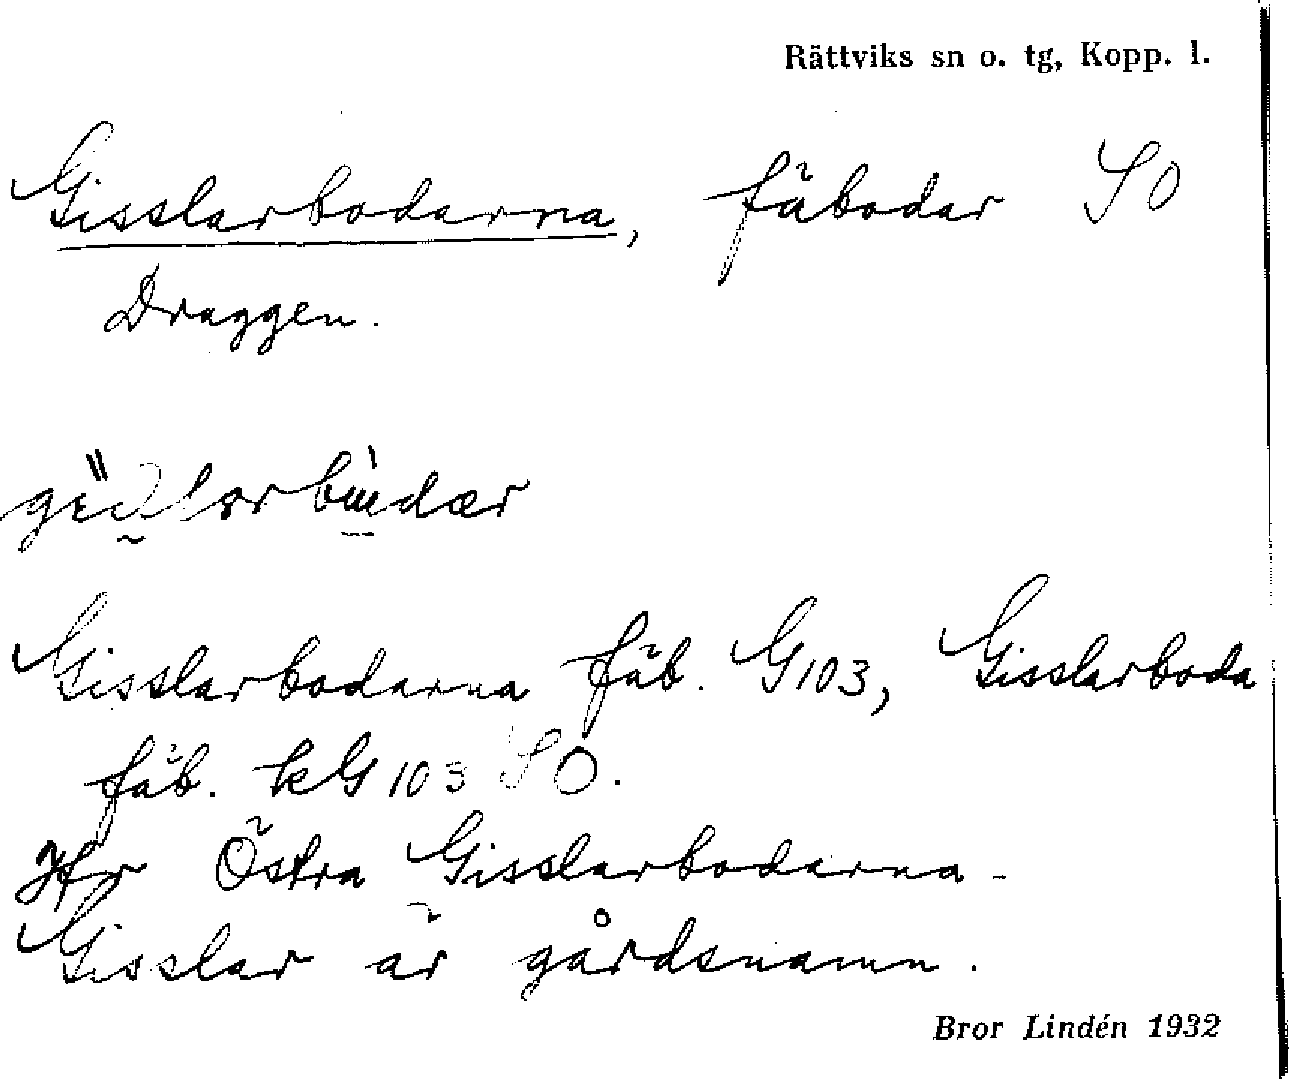 Rättviks sn o. tg, Kopp. l.
Gisslarbodarna, fäbodar SO
Draggen.
Gisslarbodarna fäb. G103, Gisslarboda
fäb. kG103 SO.
Jfr Östra Gisslarbodarna.
Gisslar är gårdsnamn.
Bror Lindén 1932